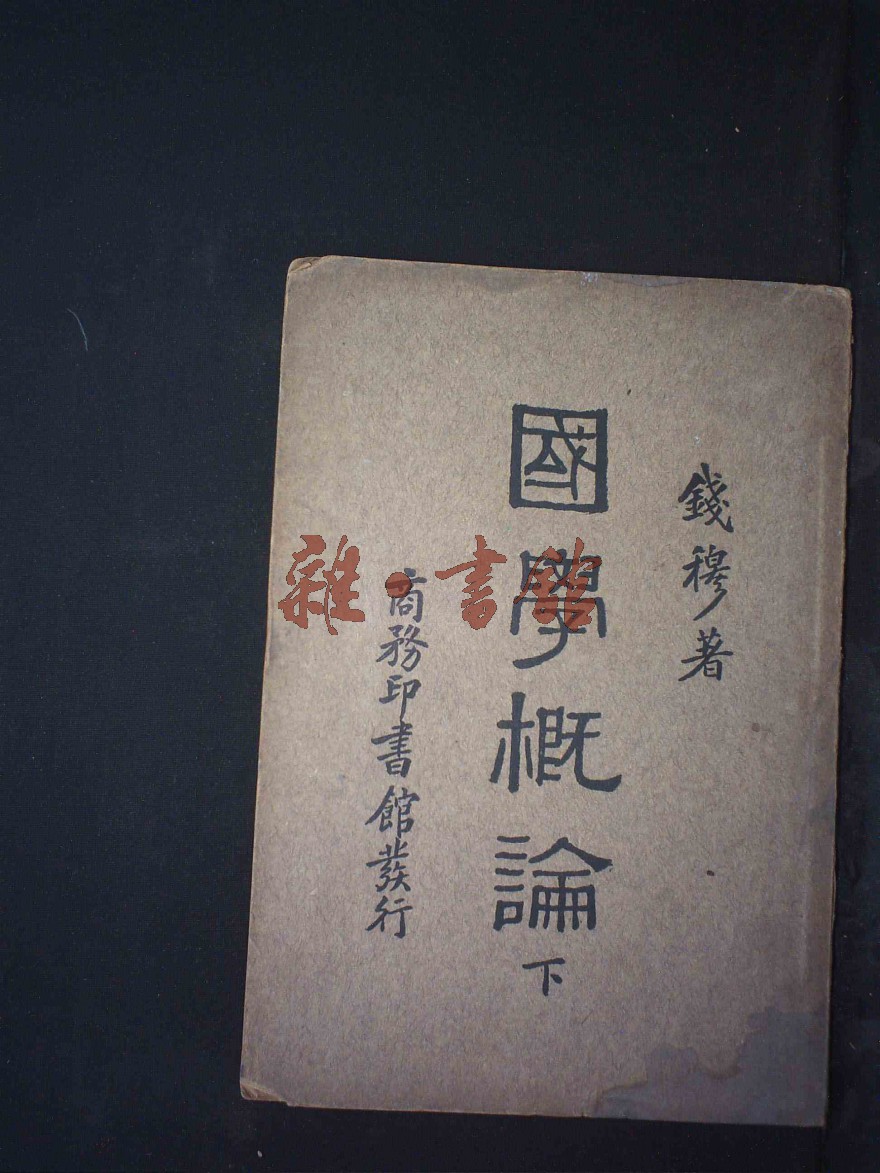 錢穆著
國學概論
下
商務印書館發行
雜·書館